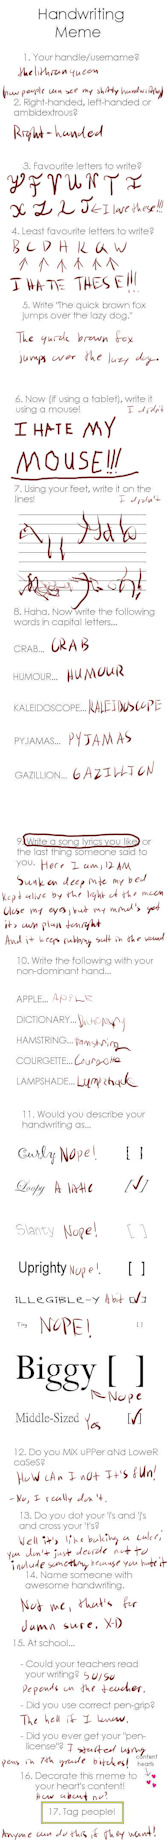 Handwriting
Meme
1. Your handle/username?
thelithranqueen
(now people can see my shitty handwriting)
2. Right-handed, left-handed or
ambidextrous?
Right-handed
3. Favourite letters to write?
I love these!!!
4. Least favourite letters to write?
B C D H K Q W
I HATE THESE!!!
5. Write "The quick brown fox
jumps over the lazy dog."
The quick brown fox
jumps over the lazy dog.
6. Now (if using a tablet), write it
using a mouse! I didn't
I HATE MY
MOUSE!!!
7. Using your feet, write it on the
lines! I didn't
8. Haha. Now write the following
words in capital letters...
CRAB... CRAB
HUMOUR... HUMOUR
KALEIDOSCOPE... KALEIDOSCOPE
PYJAMAS... PYJAMAS
GAZILLION... GAZILLION
9. Write a song lyrics you like or
the last thing someone said to
you. Here I am, 12 AM
Sunken deep into my bed
Kept alive by the light of the moon
Close my eyes, but my mind's got
its own plan tonight
And it keeps rubbing salt in the wound
10. Write the following with your
non-dominant hand...
APPLE... APPLE
DICTIONARY... Dictionary
HAMSTRING... Hamstring
COURGETTE... Courgette
LAMPSHADE... Lampshade
11. Would you describe your
handwriting as...
Curly Nope! [ ]
Loopy A little [✓]
Slanty Nope! [ ]
Uprighty Nope! [ ]
iLLeGiBLe-Y A bit [✓]
Tiny NOPE! [ ]
Biggy [ ]
Nope
Middle-Sized Yes [✓]
12. Do you MiX uPPer aNd LoweR
caSeS?
How cAn I noT It's fUn!
- No, I really don't.
13. Do you dot your 'i's and 'j's
and cross your 't's?
Well it's like baking a cake,
you don't just decide not to
include something because you hate it
14. Name someone with
awesome handwriting.
Not me, that's for
damn sure. X-D
15. At school...
- Could your teachers read
your writing? 50/50
Depends on the teacher.
- Did you use correct pen-grip?
The hell if I know.
- Did you ever get your "pen-
license"? I started using
pens in 7th grade bitches!
content
hearts
16. Decorate this meme to
your heart's content!
How about no?
17. Tag people!
Anyone can do this if they want!